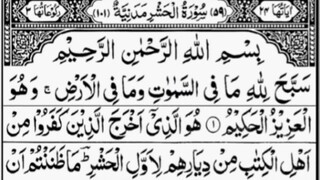 اٰیَاتُهَا ۲۴ (۵۹) سُوْرَةُ الْحَشْرِ مَدَنِیَّةٌ (۱۰۱) رُكُوْعَاتُهَا ۳
بِسْمِ اللّٰهِ الرَّحْمٰنِ الرَّحِیْمِ
سَبَّحَ لِلّٰهِ مَا فِی السَّمٰوٰتِ وَمَا فِی الْاَرْضِ ۚ وَهُوَ
الْعَزِیْزُ الْحَكِیْمُ ۱ هُوَ الَّذِیْۤ اَخْرَجَ الَّذِیْنَ كَفَرُوْا مِنْ
اَهْلِ الْكِتٰبِ مِنْ دِیَارِهِمْ لِاَوَّلِ الْحَشْرِ ؔ مَا ظَنَنْتُمْ اَنْ